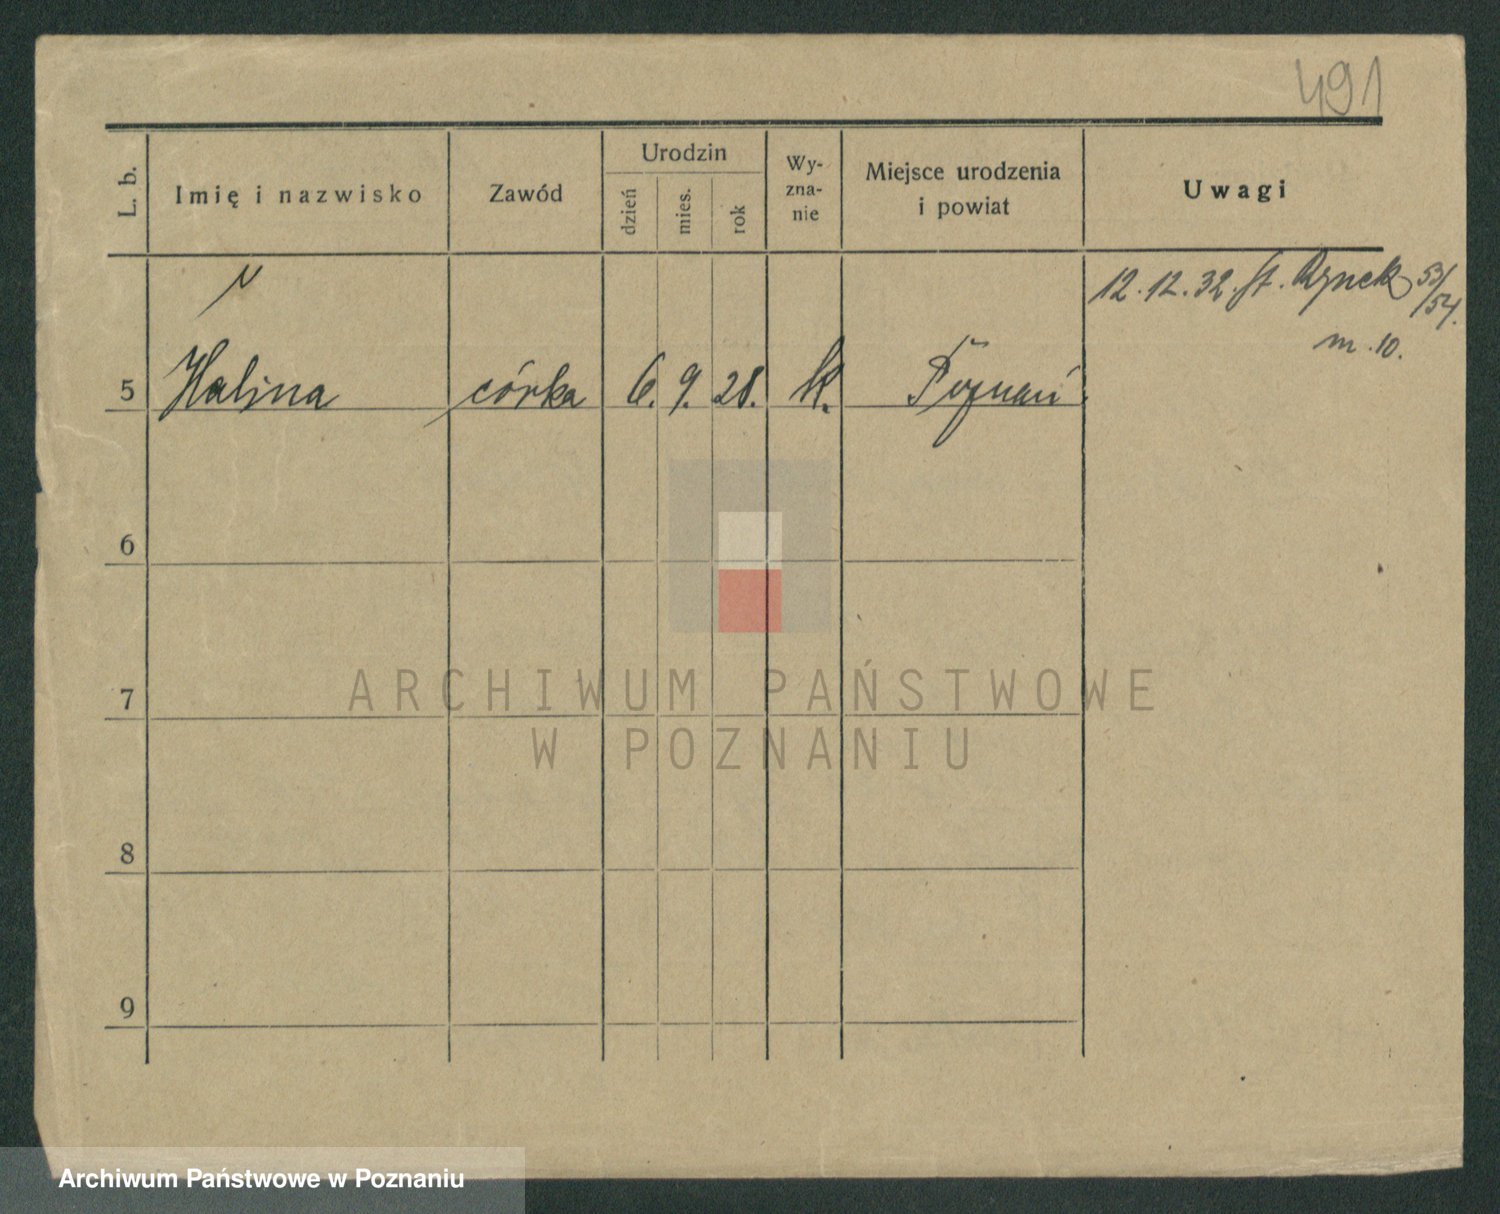 491
L. b. Imię i nazwisko Zawód Urodzin dzień mies. rok Wy-zna-nie Miejsce urodzenia i powiat Uwagi
12. 12. 32. St. Rynek 53/54.
m. 10.
5 Halina córka 6. 9. 28. k. Poznań
6
7
8
9
ARCHIWUM PAŃSTWOWE
W POZNANIU
Archiwum Państwowe w Poznaniu